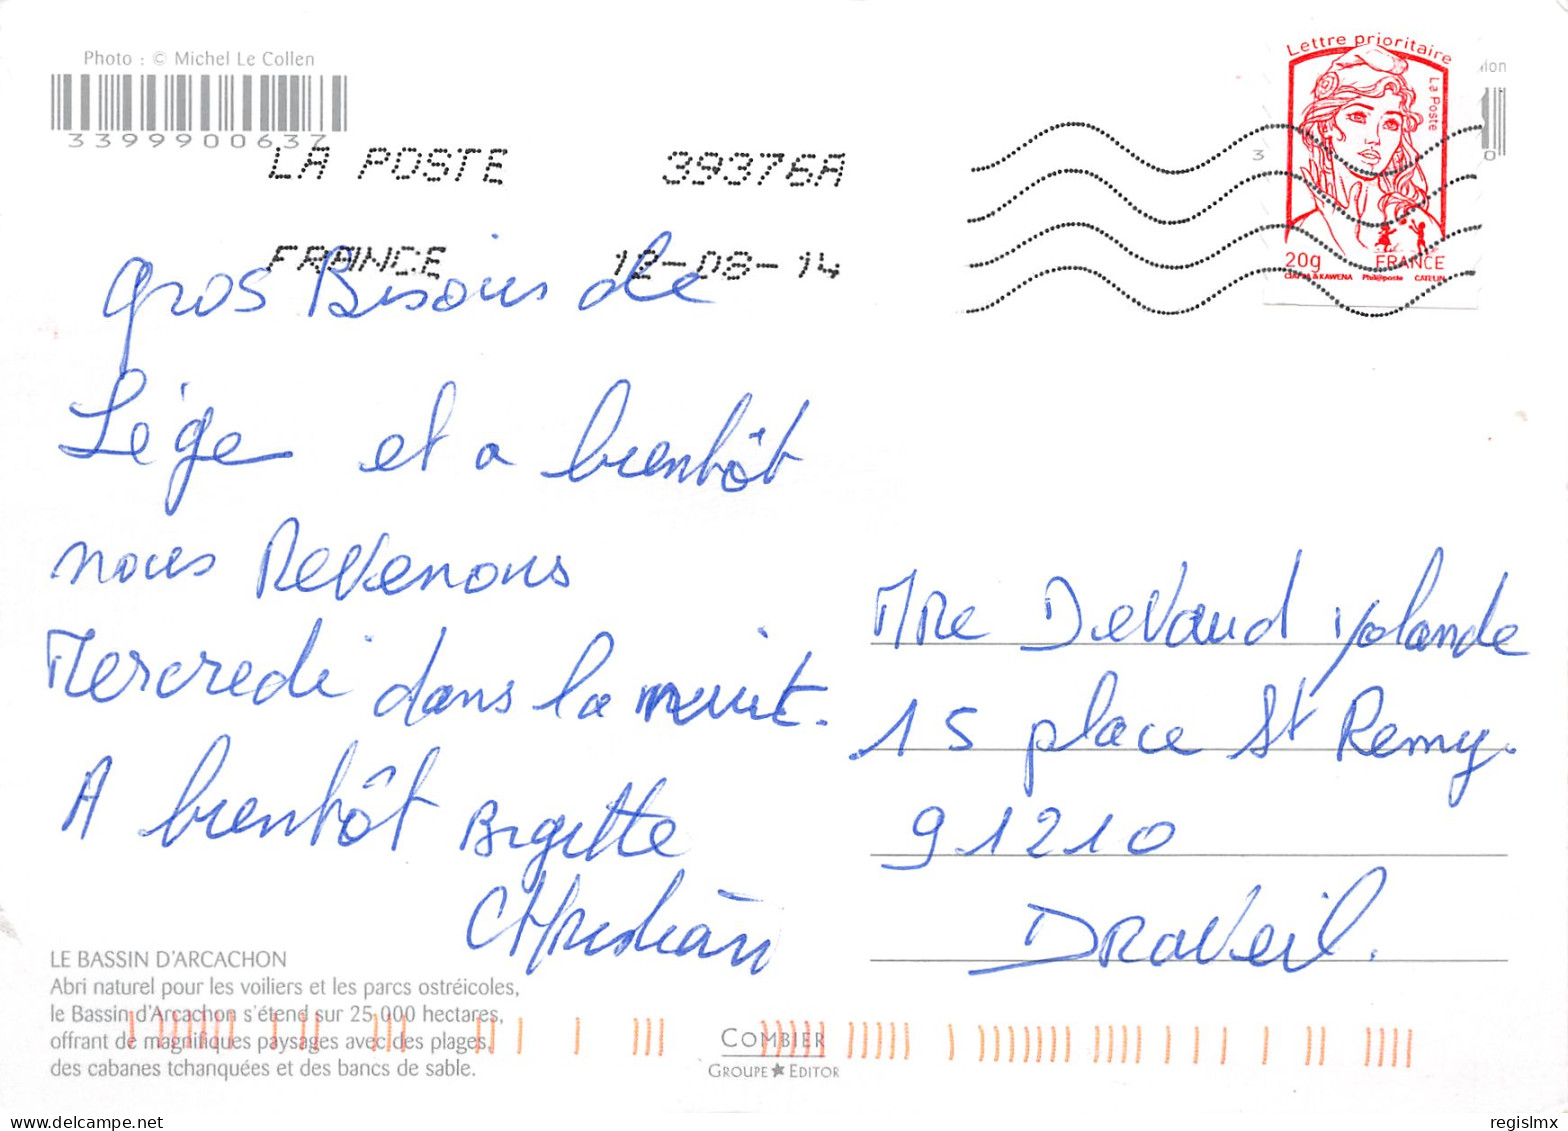 Photo : © Michel Le Collen
3399900637
LA POSTE 39376A
FRANCE 12-08-14
Lettre prioritaire
La Poste
20g FRANCE
CIAPPA & KAWENA Phil@poste CATELIN
lion
3 0
gros Bisous de
Lége et a bientôt
nous Revenons
Mercredi dans la nuit.
A bientôt Brigitte
CHristian
Mre Devaud yolande
15 place St Remy.
91210
DRaveil.
LE BASSIN D'ARCACHON
Abri naturel pour les voiliers et les parcs ostréicoles,
le Bassin d'Arcachon s'étend sur 25 000 hectares,
offrant de magnifiques paysages avec des plages,
des cabanes tchanquées et des bancs de sable.
COMBIER
GROUPE ★ EDITOR
regislmx